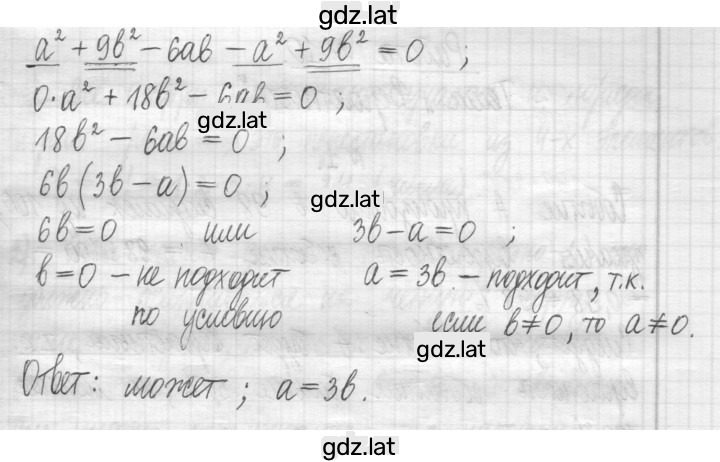 gdz.lat
a² + 9b² - 6ab - a² + 9b² = 0 ;
0·a² + 18b² - 6ab = 0 ;
gdz.lat
18b² - 6ab = 0 ;
6b(3b - a) = 0 ;
gdz.lat
6b = 0 или 3b - a = 0 ;
b = 0 - не подходит a = 3b - подходит, т.к.
по условию если b ≠ 0, то a ≠ 0.
gdz.lat
Ответ: может ; a = 3b.
gdz.lat